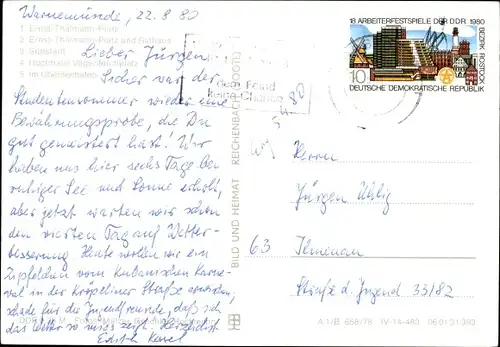 Warnemünde, 22.8.80
1 Ernst-Thälmann-Platz
2 Ernst-Thälmann-Platz und Rathaus
3 Südstadt
4 Hochhaus Vögenteichplatz
5 Im Überseehafen
Lieber Jürgen!
Sicher war der
Studentensommer wieder eine
Bewährungsprobe, die Du
gut gemeistert hast! Wir
haben uns hier sechs Tage bei
ruhiger See und Sonne erholt,
aber jetzt warten wir schon
den vierten Tag auf Wetter-
besserung. Heute wollen wir ein
Zipfelchen vom kubanischen Karne-
val in der Kröpeliner Straße erwischen,
schade für die Jugendfreunde, daß sich
das Wetter so mies zeigt. Herzlichst
Edith
DDR M
BILD UND HEIMAT REICHENBACH
dem Feind
keine Chance
18. ARBEITERFESTSPIELE DER DDR 1980
BEZIRK ROSTOCK
10
DEUTSCHE DEMOKRATISCHE REPUBLIK
Herrn
Jürgen Uhlig
63 Ilmenau
Straße d. Jugend 33/82
A 1/B 658/78 IV-14-483 06 01 31 393